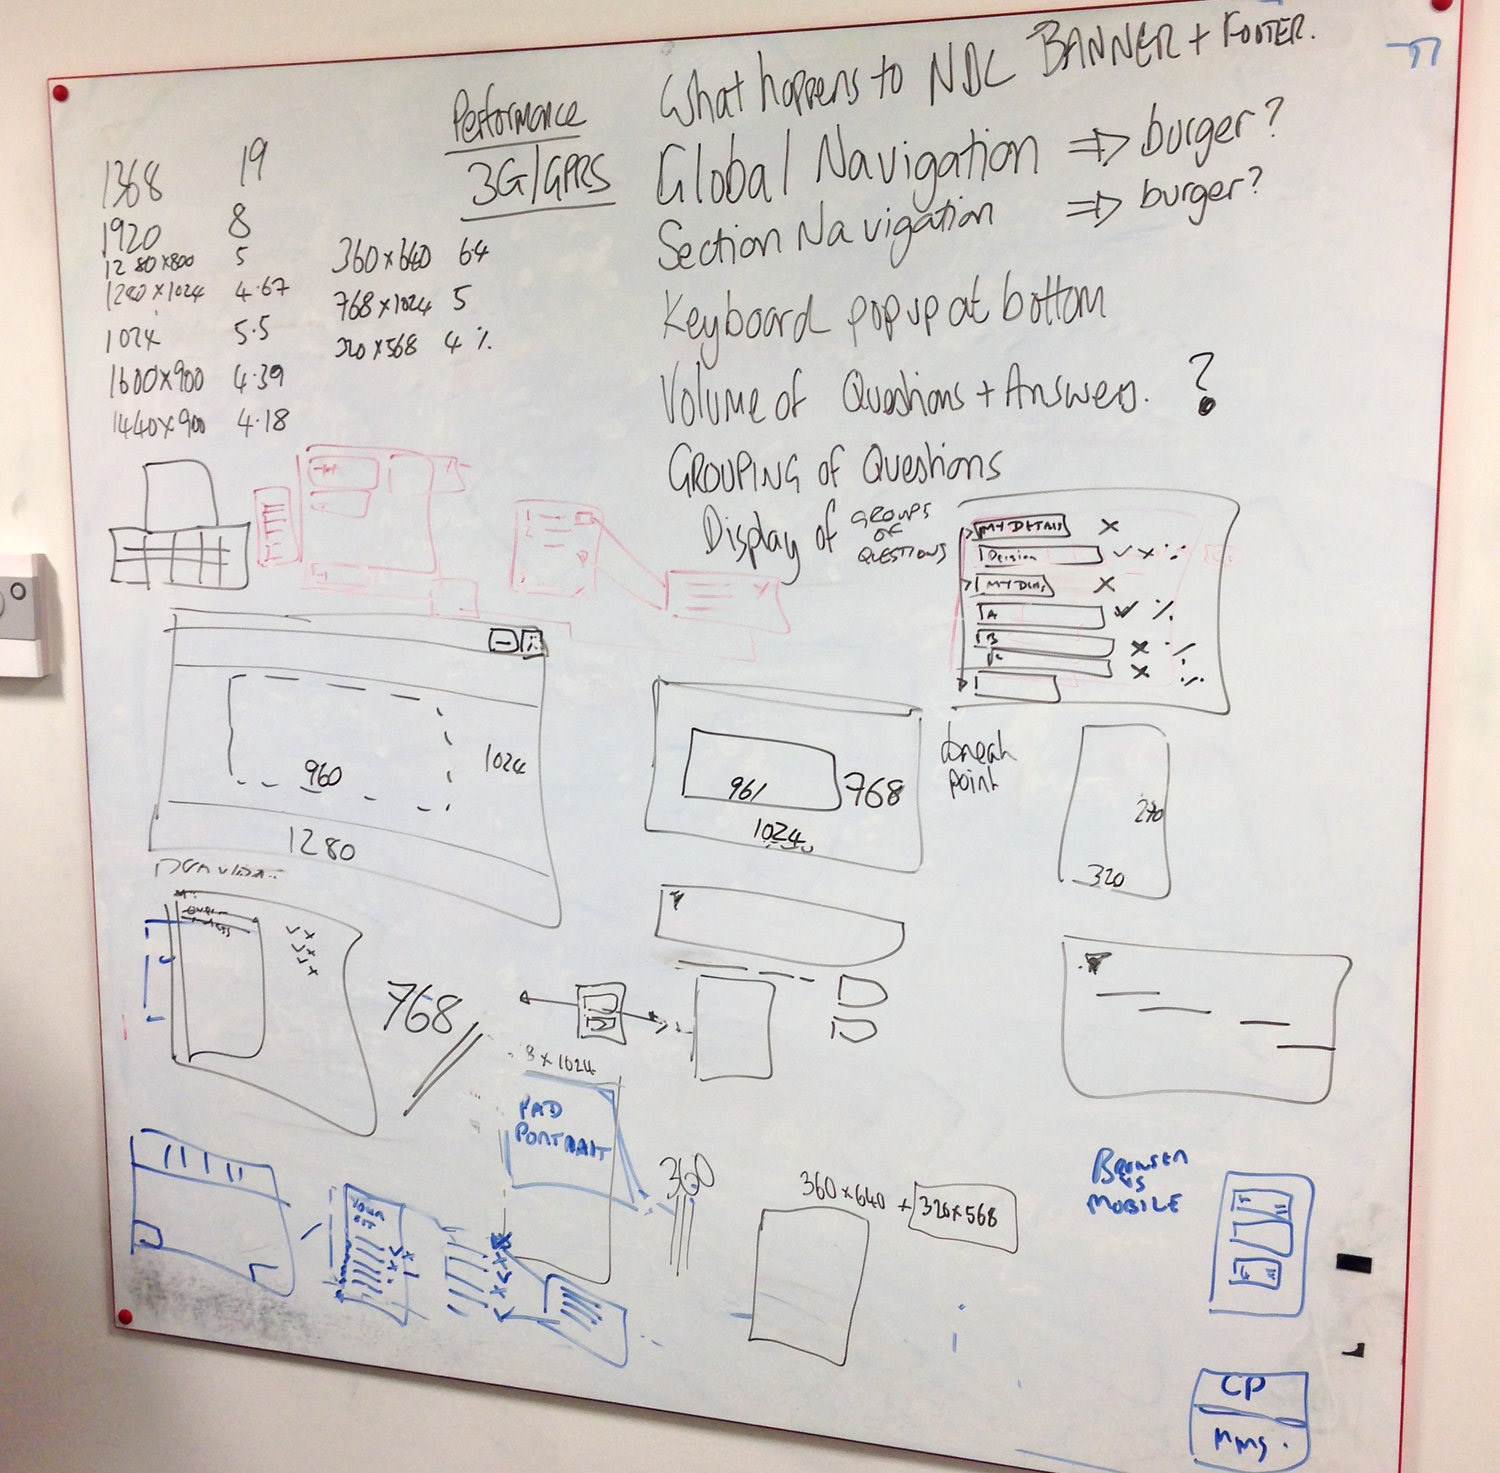 What happens to NDL BANNER + FOOTER.
Global Navigation ⇒ burger?
Section Navigation ⇒ burger?
Keyboard popup at bottom
Volume of Questions + Answers. ?
GROUPING of Questions
Display of GROUPS
OF
QUESTIONS
Performance
3G/GPRS
1368 19
1920 8
1280x800 5
1280x1024 4.67
1024 5.5
1600x900 4.39
1440x900 4.18
360x640 6.4
768x1024 5
320x568 4 %
MY DETAILS x
Decision ✓ x
MY x
A ✓
B x
x
960
1024
1280
961
768
1024
break
point
270
320
768
x 1024
PAD
PORTRAIT
360
360x640 + 320x568
YOUR
BROWSER
VS
MOBILE
CP